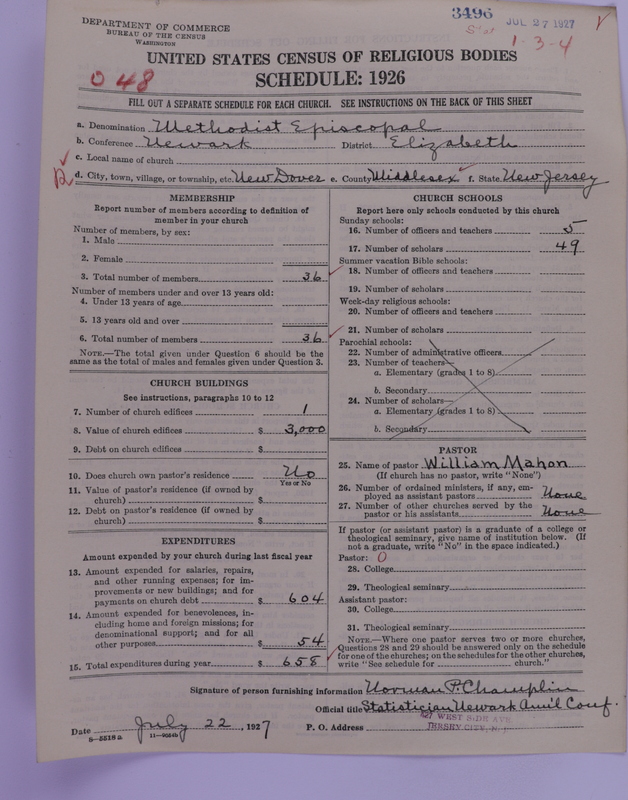 DEPARTMENT OF COMMERCE
BUREAU OF THE CENSUS
WASHINGTON
3496 JUL 27 1927
Stat
1-3-4
048
UNITED STATES CENSUS OF RELIGIOUS BODIES
SCHEDULE: 1926
FILL OUT A SEPARATE SCHEDULE FOR EACH CHURCH. SEE INSTRUCTIONS ON THE BACK OF THIS SHEET
a. Denomination Methodist Episcopal
b. Conference Newark District Elizabeth
c. Local name of church
d. City, town, village, or township, etc. New Dover e. County Middlesex f. State New Jersey
MEMBERSHIP
Report number of members according to definition of
member in your church
Number of members, by sex:
1. Male
2. Female
3. Total number of members 36
Number of members under and over 13 years old:
4. Under 13 years of age
5. 13 years old and over
6. Total number of members 36
NOTE.—The total given under Question 6 should be the
same as the total of males and females given under Question 3.
CHURCH BUILDINGS
See instructions, paragraphs 10 to 12
7. Number of church edifices 1
8. Value of church edifices $ 3,000
9. Debt on church edifices $
10. Does church own pastor's residence No
Yes or No
11. Value of pastor's residence (if owned by
church) $
12. Debt on pastor's residence (if owned by
church) $
EXPENDITURES
Amount expended by your church during last fiscal year
13. Amount expended for salaries, repairs,
and other running expenses; for im-
provements or new buildings; and for
payments on church debt $ 604
14. Amount expended for benevolences, in-
cluding home and foreign missions; for
denominational support; and for all
other purposes $ 54
15. Total expenditures during year $ 658
CHURCH SCHOOLS
Report here only schools conducted by this church
Sunday schools:
16. Number of officers and teachers 5
17. Number of scholars 49
Summer vacation Bible schools:
18. Number of officers and teachers
19. Number of scholars
Week-day religious schools:
20. Number of officers and teachers
21. Number of scholars
Parochial schools:
22. Number of administrative officers
23. Number of teachers—
a. Elementary (grades 1 to 8)
b. Secondary
24. Number of scholars—
a. Elementary (grades 1 to 8)
b. Secondary
PASTOR
25. Name of pastor William Mahon
(If church has no pastor, write "None")
26. Number of ordained ministers, if any, em-
ployed as assistant pastors None
27. Number of other churches served by the
pastor or his assistants None
If pastor (or assistant pastor) is a graduate of a college or
theological seminary, give name of institution below. (If
not a graduate, write "No" in the space indicated.)
Pastor: 0
28. College
29. Theological seminary
Assistant pastor:
30. College
31. Theological seminary
NOTE.—Where one pastor serves two or more churches,
Questions 28 and 29 should be answered only on the schedule
for one of the churches; on the schedules for the other churches,
write "See schedule for church."
Signature of person furnishing information Norman P. Champlin
Official title Statistician Newark Annl Conf.
Date July 22, 1927 P. O. Address 427 WEST SIDE AVE.
JERSEY CITY, N. J.
8-5518a 11-9054b